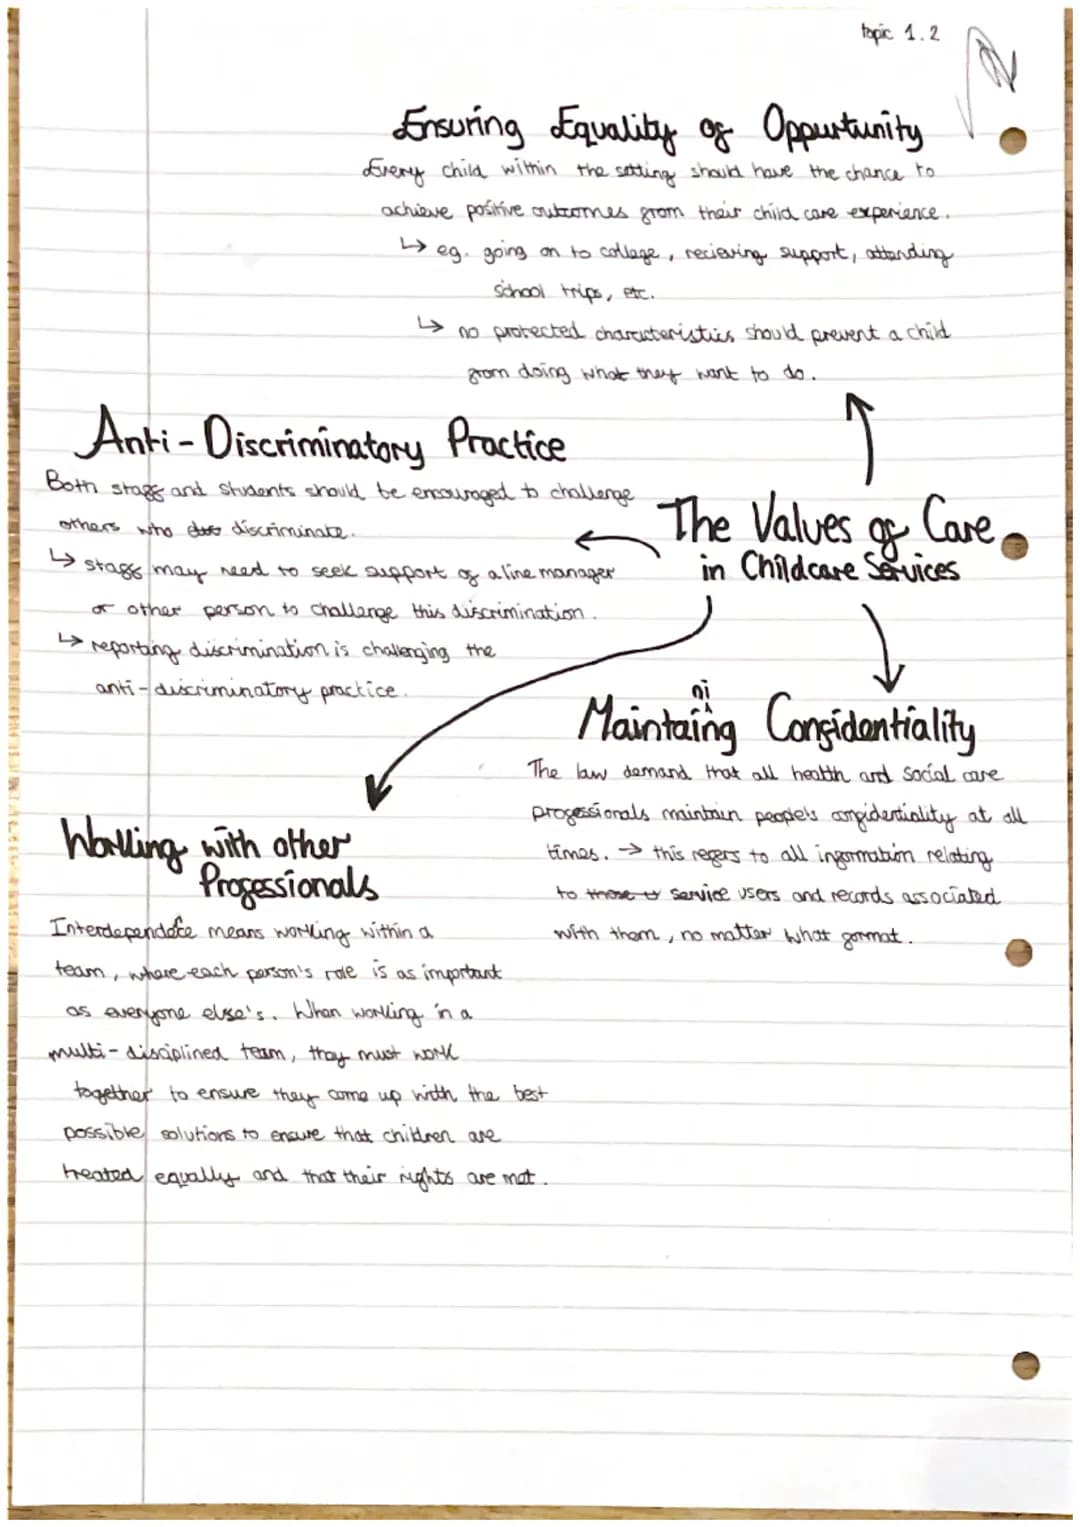 topic 1.2
Ensuring Equality of Oppurtunity
Every child within the setting should have the chance to
achieve positive outcomes from their child care experience.
↳ eg. going on to college, recieving support, attending
school trips, etc.
↳ no protected characteristics should prevent a child
from doing what they want to do.
Anti-Discriminatory Practice
Both staff and students should be encouraged to challenge
others who discriminate.
↳ staff may need to seek support of a line manager
or other person to challenge this discrimination.
↳ reporting discrimination is challenging the
anti-discriminatory practice.
The Values of Care
in Childcare Services
Maintaining Confidentiality
The law demand that all health and social care
professionals maintain people's confidentiality at all
times. → this refers to all information relating
to those service users and records associated
with them, no matter what format.
Working with other
Professionals
means working within a
team, where each person's role is as important
as everyone else's. When working in a
multi-disciplined team, they must work
together to ensure they come up with the best
possible solutions to ensure that children are
treated equally and that their rights are met.